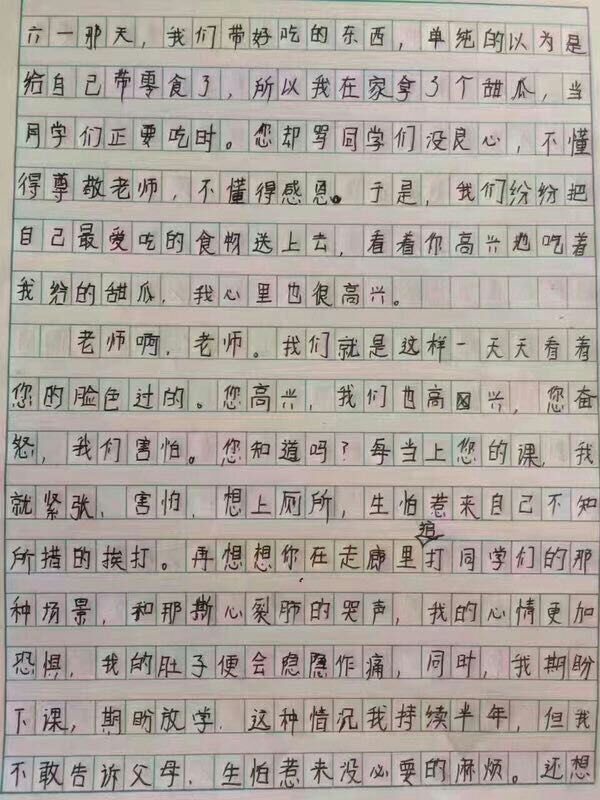 六一那天，我们带好吃的东西，单纯的以为是
给自己带零食了，所以我在家拿了个甜瓜，当
同学们正要吃时。您却骂同学们没良心，不懂
得尊敬老师，不懂得感恩。于是，我们纷纷把
自己最爱吃的食物送上去，看着你高兴地吃着
我给的甜瓜，我心里也很高兴。
老师啊，老师。我们就是这样一天天看着
您的脸色过的。您高兴，我们也高兴，您奋
怒，我们害怕。您知道吗？每当上您的课，我
就紧张，害怕，想上厕所，生怕惹来自己不知
所措的挨打。再想想你在走廊里追打同学们的那
种场景，和那撕心裂肺的哭声，我的心情更加
恐惧，我的肚子便会隐隐作痛，同时，我期盼
下课，期盼放学，这种情况我持续半年，但我
不敢告诉父母，生怕惹来没必要的麻烦。还想